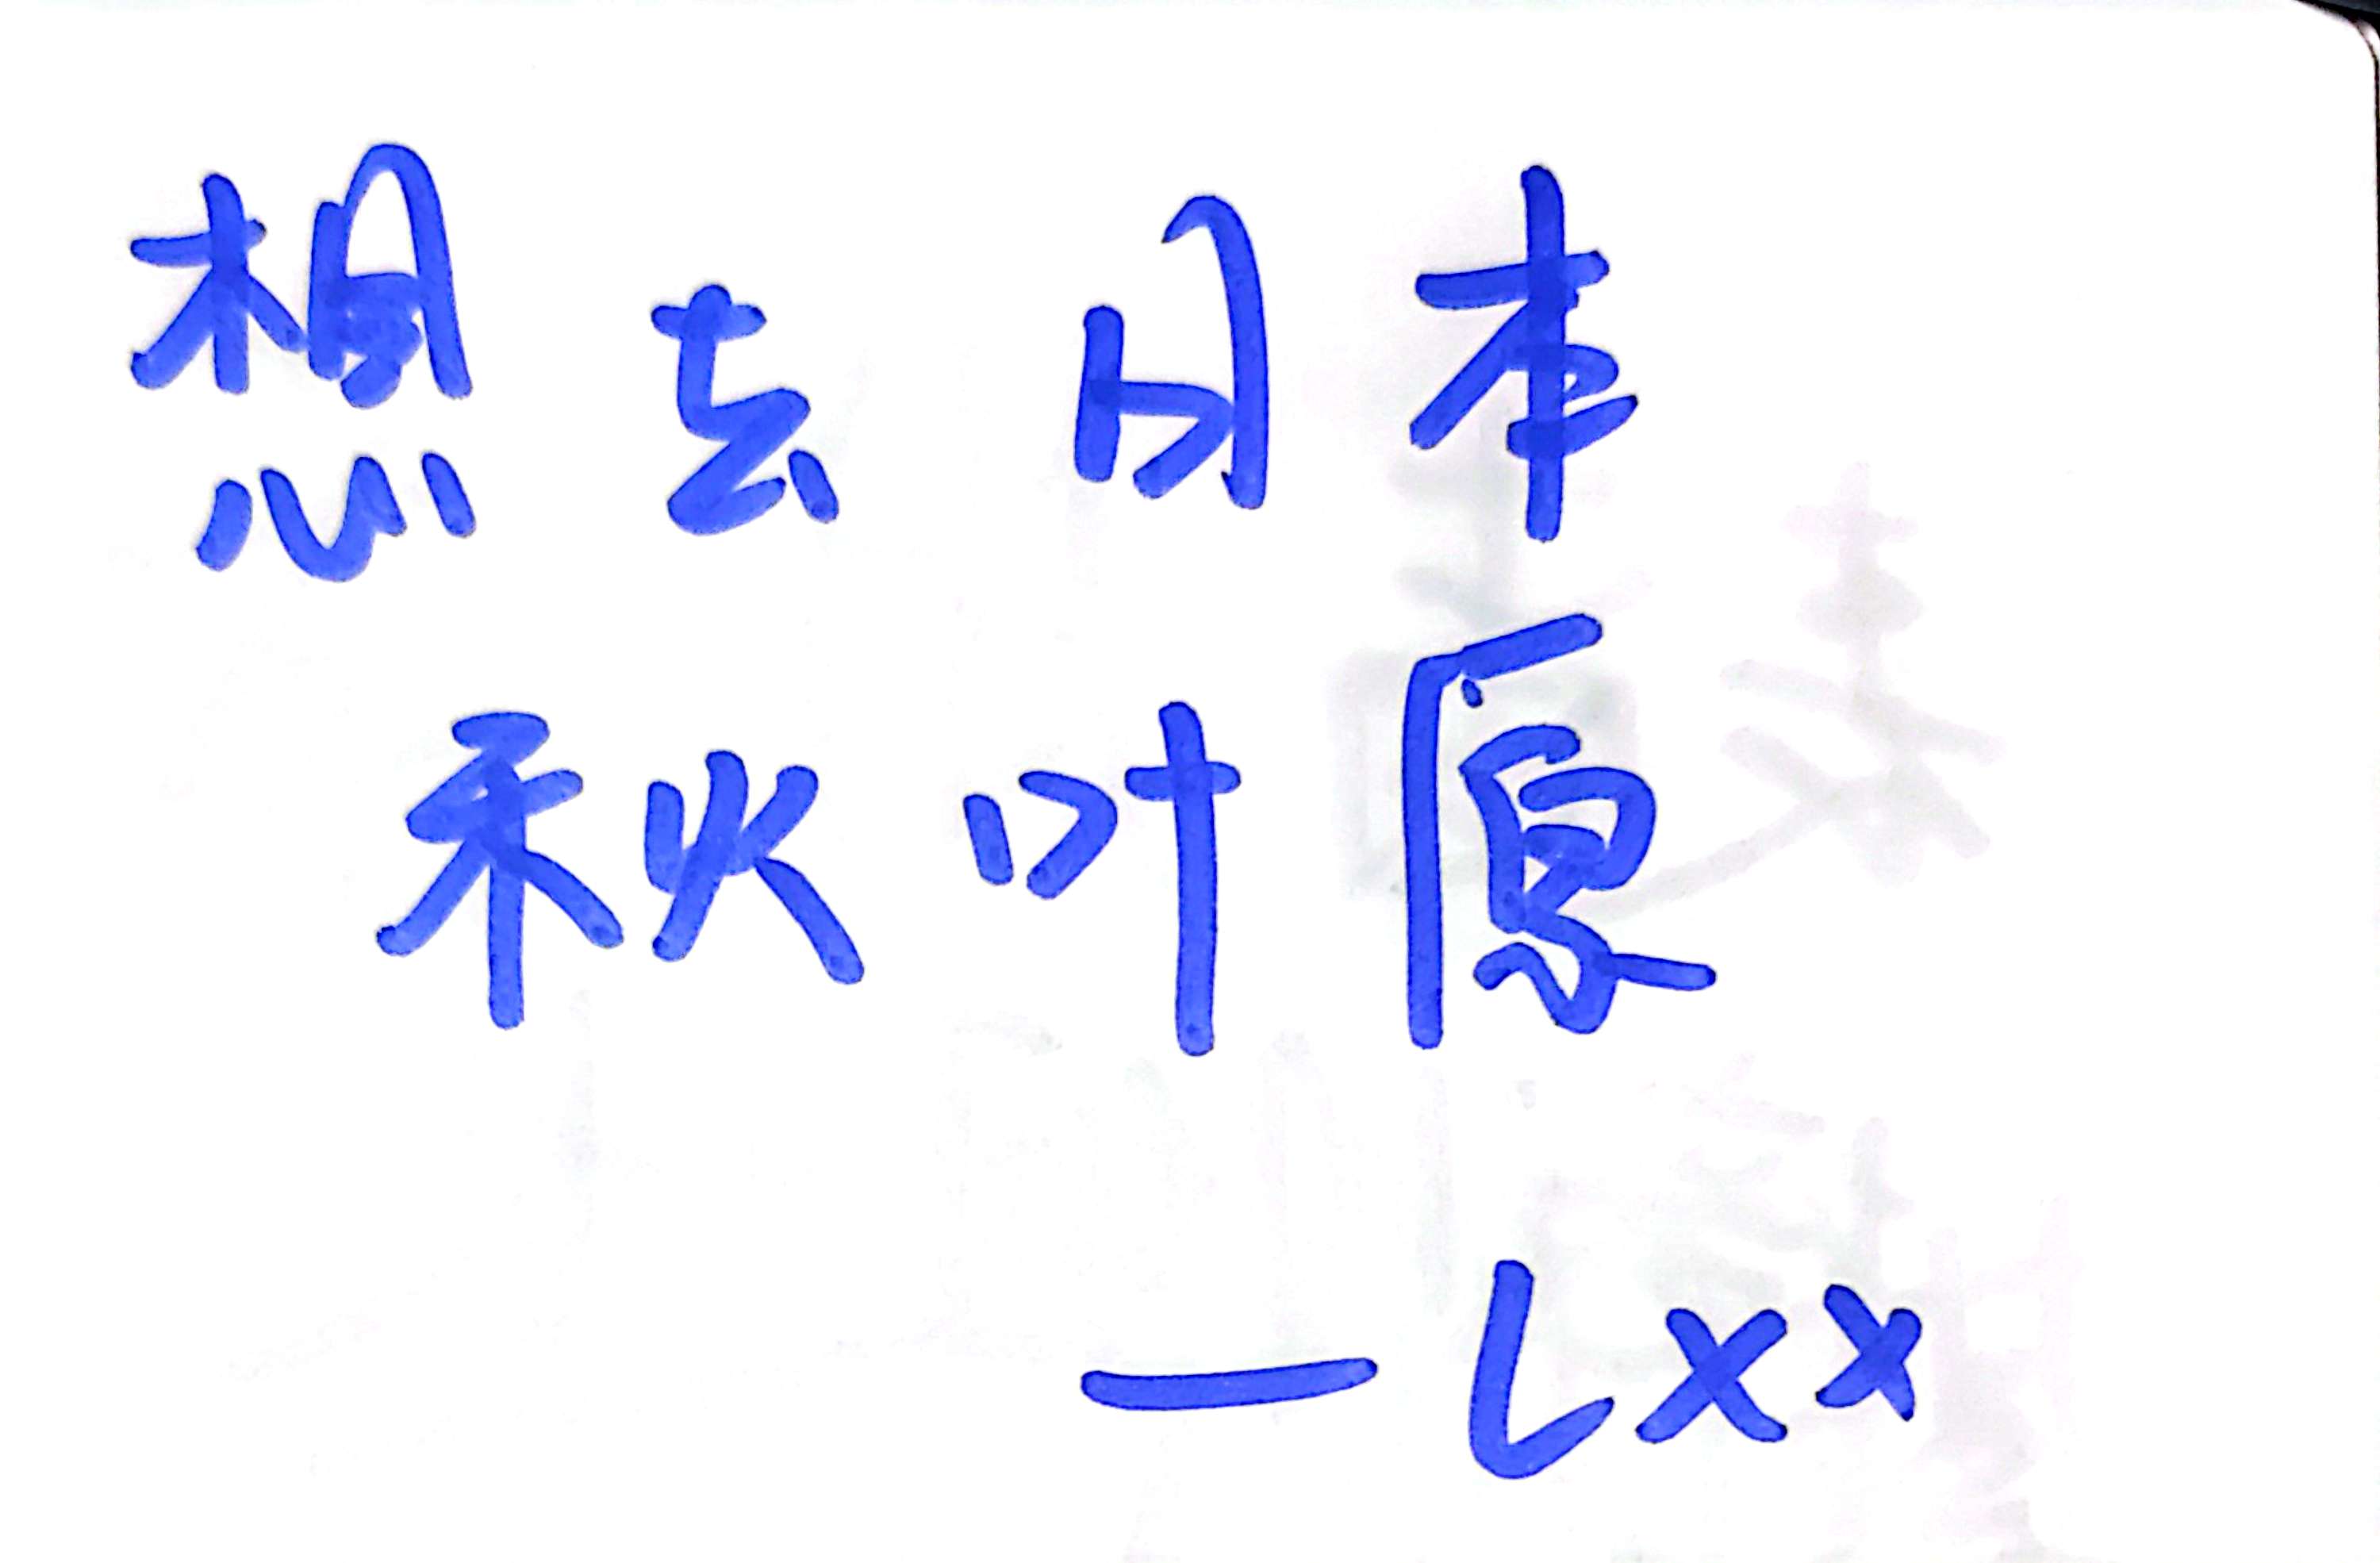 想去日本
秋叶原
— Lxx